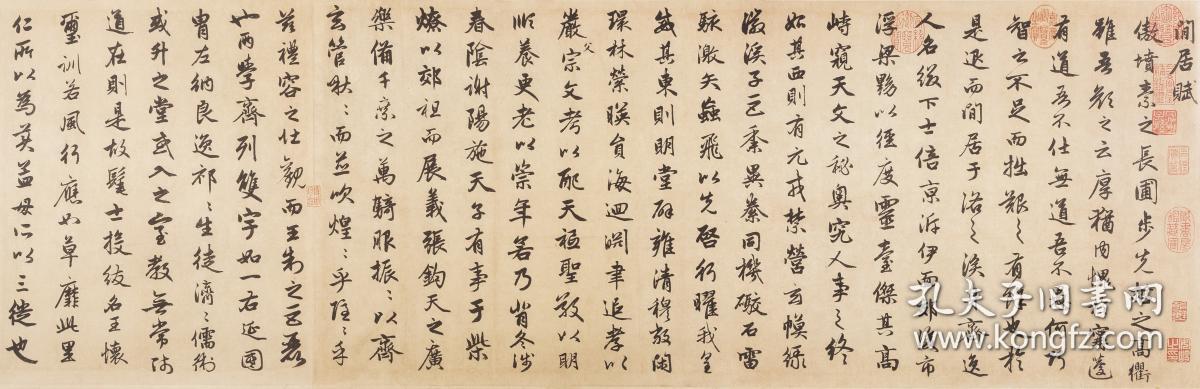 閒居賦
傲墳素之長圃步先哲之高衢
雖吾顏之云厚猶內愧寧蘧
有道吾不仕無道吾不愚何巧
智之不足而拙艱之有餘也於
是退而閒居于洛之涘齊逸
人名綴下士倍京泝伊面郊後市
浮梁黝以徑度靈臺傑其高
峙窺天文之祕奧究人事之終
始其西則有元戎禁營玄幙綠
徽溪子巨黍異絭同機礮石雷
駭激矢蝱飛以先啓行曜我皇
威其東則明堂辟雍清穆敞閑
環林縈暎員海迴淵聿追孝以
嚴父宗文考以配天秪聖敬以明
順養更老以崇年若乃背冬涉
春陰謝陽施天子有事于柴
燎以郊祖而展義張鈞天之廣
樂備千乘之萬騎服振〻以齊
玄管秋〻而並吹煌〻乎隱〻乎
茲禮容之壯觀而王制之巨麗
也兩學齊列雙宇如一右延國
胄左納良逸祁〻生徒濟〻儒術
或升之堂或入之室教無常師
道在則是故髦士投紱名王懷
璽訓若風行應如草靡此里
仁所以為美孟母所以三徙也
孔夫子旧书网
www.kongfz.com